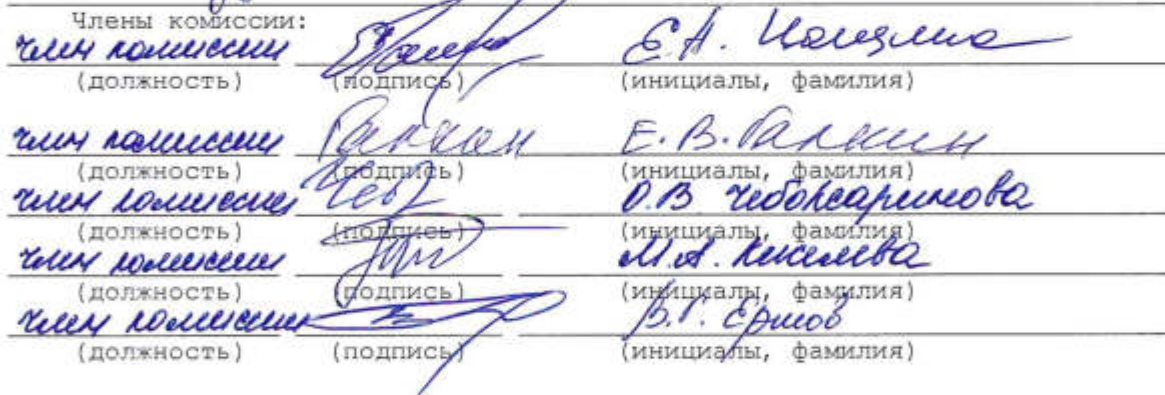 Члены комиссии:
член комиссии Е.А.
(должность) (подпись) (инициалы, фамилия)
член комиссии Галкин Е.В. Галкин
(должность) (подпись) (инициалы, фамилия)
член комиссии О.В. Чебоксаринова
(должность) (подпись) (инициалы, фамилия)
член комиссии М.А. Киселева
(должность) (подпись) (инициалы, фамилия)
член комиссии В.Г. Ермов
(должность) (подпись) (инициалы, фамилия)